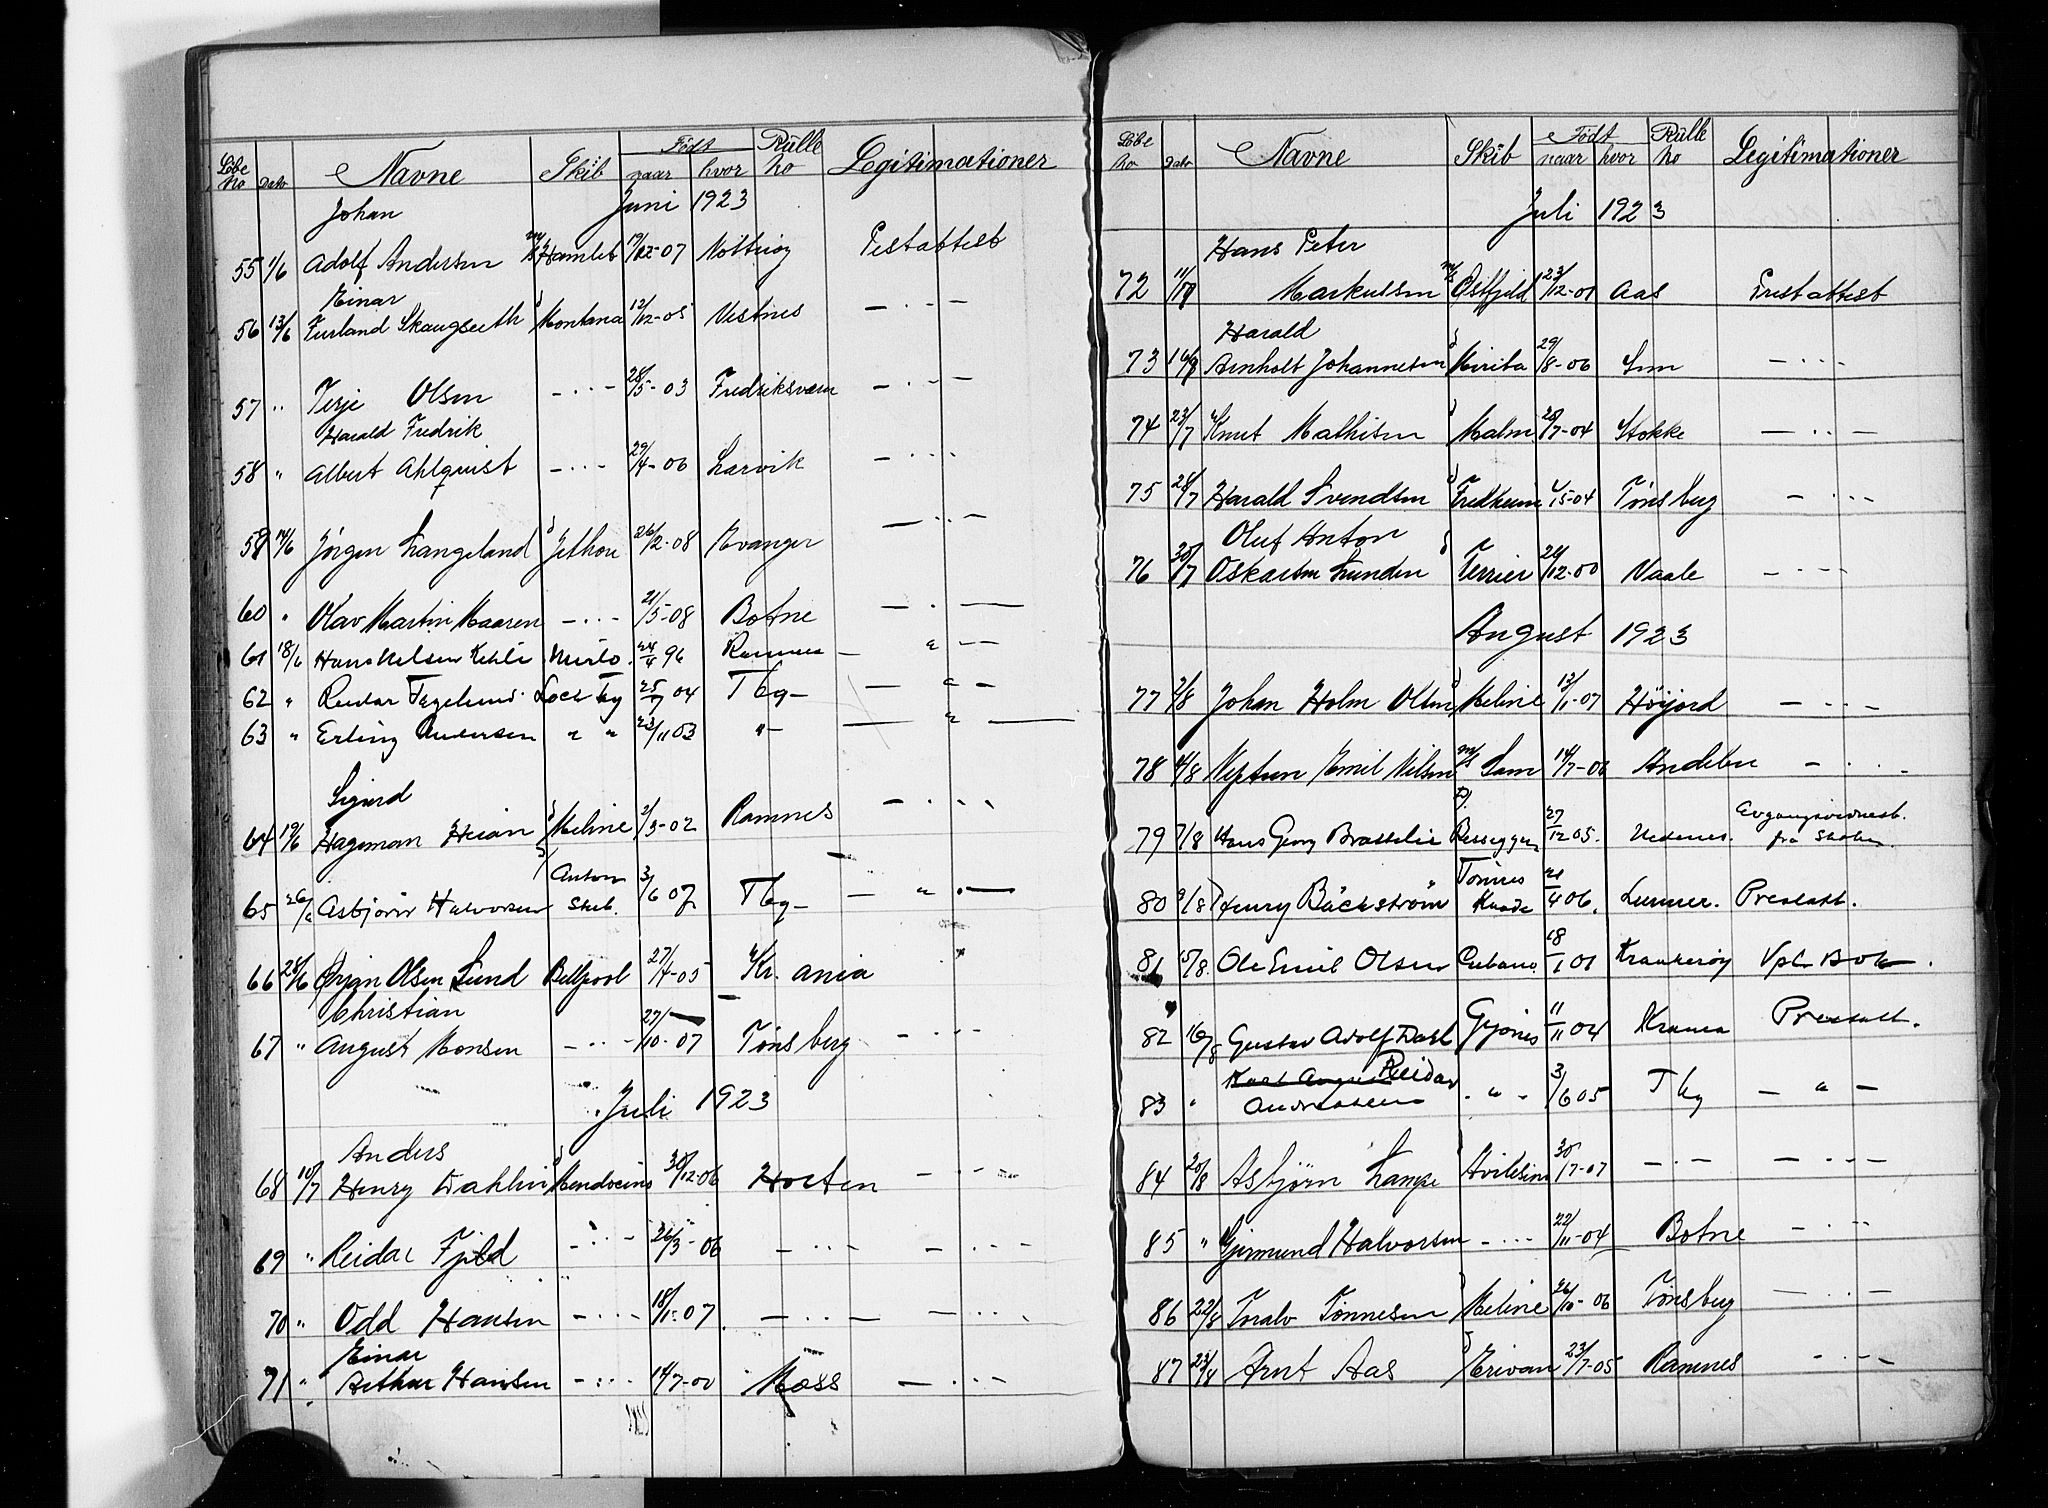 Löbe No Dato Navne Skib Födt naar hvor Rulle No Legitimationer
Juni 1923
Johan
55 1/6 Adolf Andersen M/S Hamlet 19/12-07 Nötteröy Prestattest
Einar
56 13/6 Furland Skaugseth S Montana 12/12-05 Vestnes — · — —
57 " Terje Olsen — · · — 28/5-03 Fredriksværn — · — —
Harald Fredrik
58 " Albert Ahlqvist — · · — 29/4-06 Larvik — · · —
59 14/6 Jørgen Langeland S Jethou 26/2-08 Kvanger — · · —
60 " Olav Martin Maaren — · · — 21/5-08 Botne — · —
61 18/6 Hans Nelsen Kehli Mirlo 24/4 96 Ramnes — " —
62 " Reidar Fagelund Loch Tay 25/7 04 Tbg — — " —
63 " Erling Andersen " " 23/11 03 " — — " —
Sigurd
64 19/6 Hageman Heian S Meline 2/3-02 Ramnes — · · ·
65 26/6 Asbjørn Halvorsen S/ Anton Skib. 3/6 07 Tbg — — " —
66 28/6 Ørjan Olsen Lund Bellpool 27/4-05 Kr. ania "
Christian
67 " August Monsen — · · — 27/10-07 Tønsberg — · · ·
Juli 1923
Anders
68 10/7 Henry Dahlin S Mendocino 30/12-06 Horten — · · · —
69 " Reidar Fjeld — · · — 26/3-06 — · · · — — · · · —
70 " Odd Hansen — · · · — 18/1-07 — · · · — — · · ·
Einar
71 " Arthur Hansen — · · — 14/7-00 Moss — · · · —
Löbe No Dato Navne Skib Födt naar hvor Rulle No Legitimationer
Juli 1923
Hans Peter
72 11/7 Markussen M/S Østfjeld 23/12-01 Aas Prestattest
Harald
73 16/7 Arnholt Johannesen S Mirita 29/8-06 Sem — · · · —
74 23/7 Knut Mathisen S Malm 20/7-04 Stokke — · · —
75 28/7 Harald Svendsen S Fredheim 15-04 Tønsberg — · · · —
Oluf Anton
76 30/7 Oskarsen Lunden S Terrier 24/12-00 Vaale — · · · —
August 1923
77 2/8 Johan Holm Olsen S Meline 13/1-07 Höijord — · · · —
78 4/8 Neptun Emil Nilsen M/S Sam 14/7-06 Andebu — · · · —
79 7/8 Hans Georg Brattelie D/ Besseggen 27/12 05. Nedenes. Avgangsvidnesb. fra Skolen.
80 9/8 Henry Bäckström Tönnes Kaade 21/4 06. Lunner. Prestatt.
81 15/8. Ole Emil Olsen Cubano 18/1 01 Kraakerøy Vpl. Bok.
82 16/8 Gustav Adolf Dahl Gyönes 11/11 04 Krania Prestatt.
83 " Karl August Reidar Andreassen · " · 3/6 05 Tbg — " —
84 20/8 Asbjörn Lampe Hvilesund 30/7-07 — · — — · · · —
85 " Gjermund Halvorsen — · · · — 22/11-04 Botne — · · —
86 22/8 Toralv Tönnesen S Meline 26/10-06 Tønsberg — · · · —
87 23/8 Arnt Aas S Erivan 23/7-05 Ramnes — · · · —